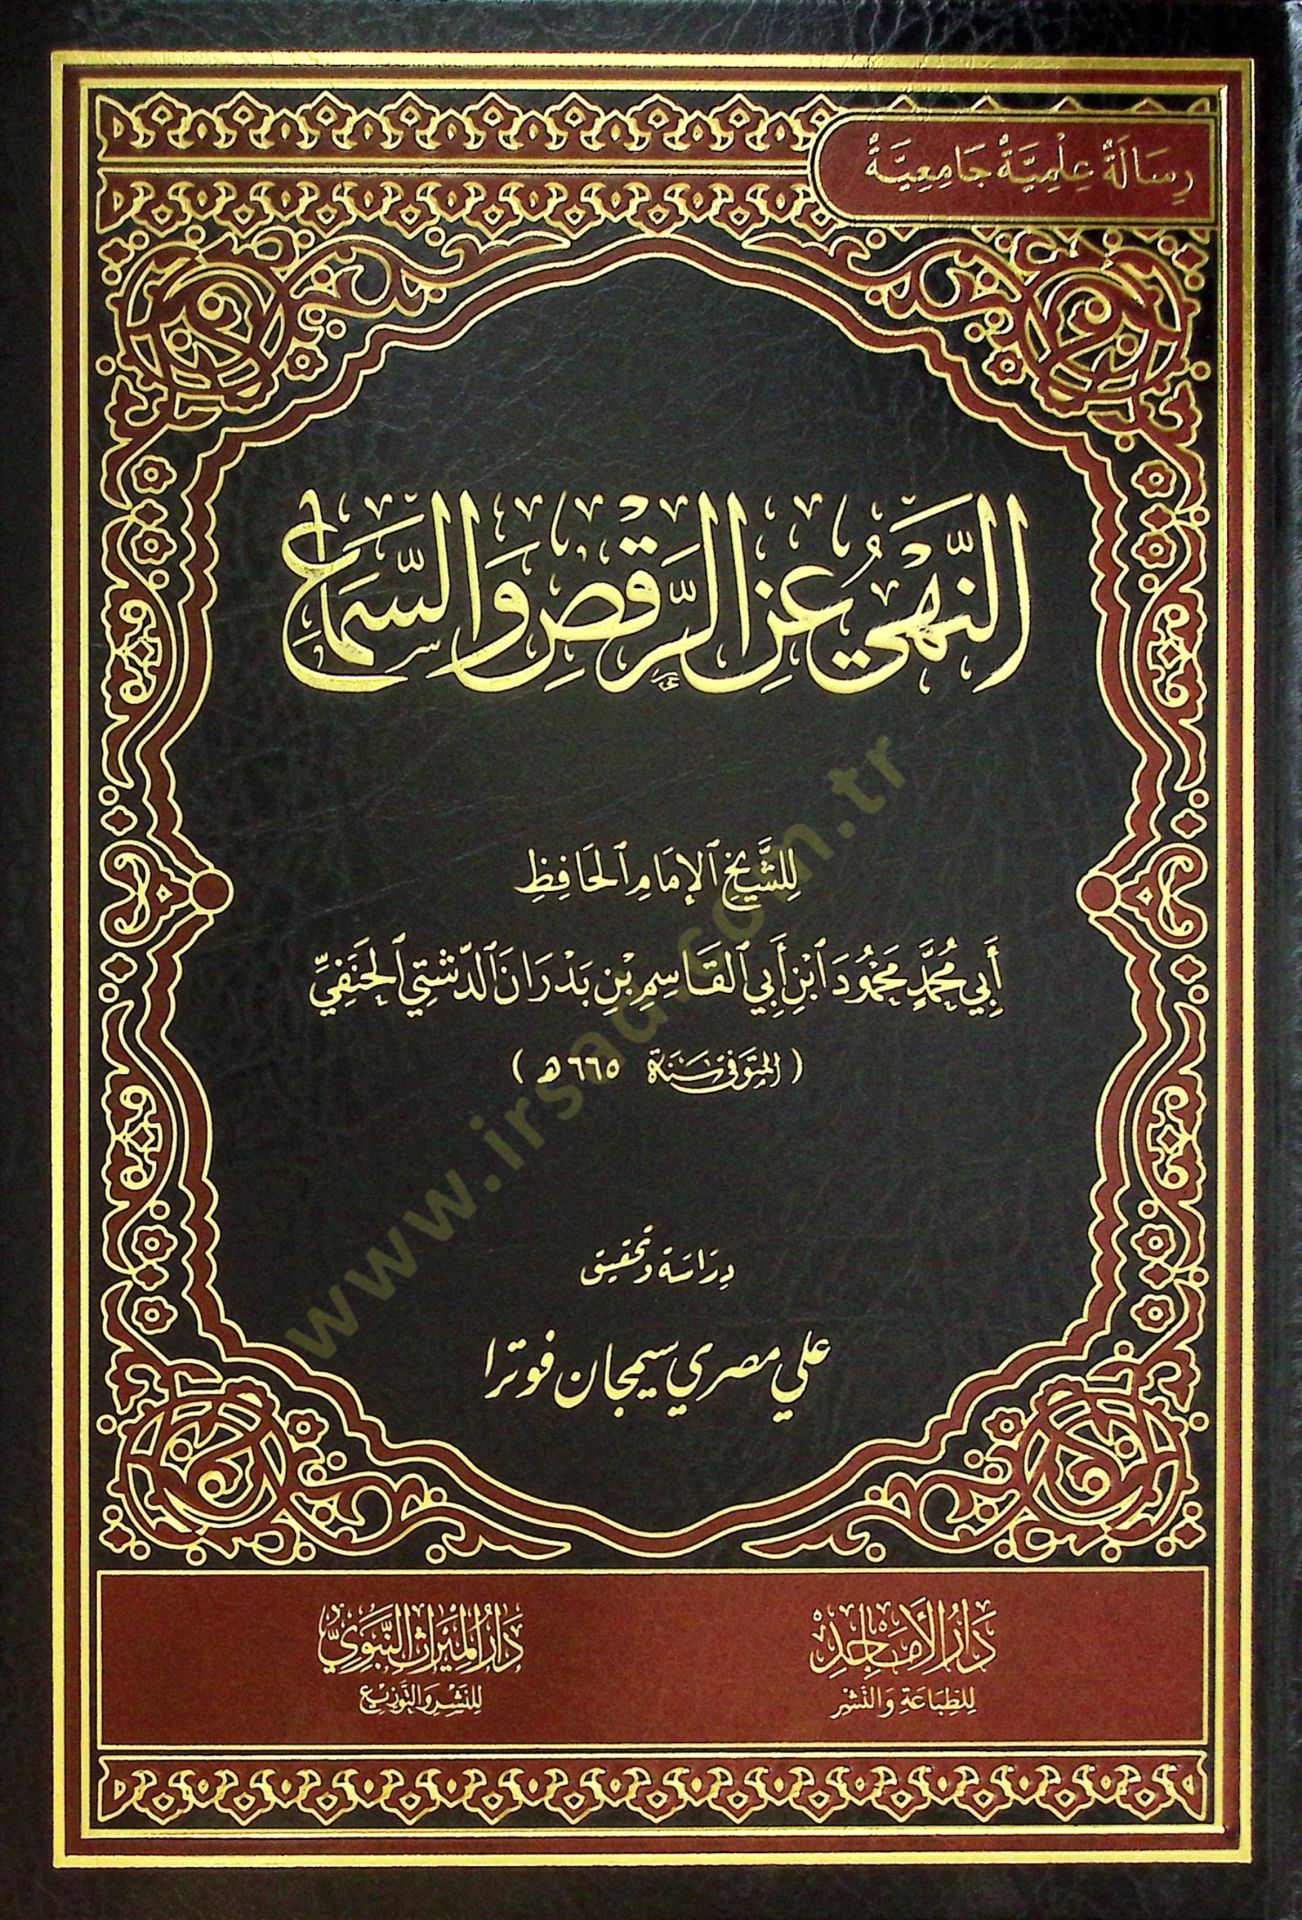 رِسَالَةٌ عِلْمِيَّةٌ جَامِعِيَّةٌ
النَّهْيُ عَنِ الرَّقْصِ وَالسَّمَاعِ
لِلشَّيْخِ الإِمَامِ الحَافِظِ
أَبِي مُحَمَّدٍ مَحْمُودَ ابْنِ أَبِي القَاسِمِ بْنِ بَدْرَانَ الدَّشْتِي الحَنَفِيِّ
(المتوفى سنة ٦٦٥ هـ)
دراسة وتحقيق
علي مصري سيمجان فوترا
دَارُ الأَمَاجِدِ
لِلطِّبَاعَةِ وَالنَّشْرِ
دَارُ المِيرَاثِ النَّبَوِيِّ
لِلنَّشْرِ وَالتَّوْزِيعِ
www.irsad.com.tr